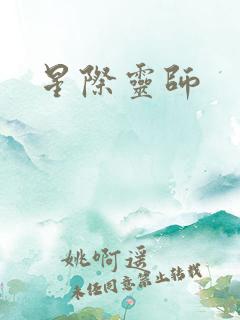 星際靈師
姚啊遥
未经同意禁止转载